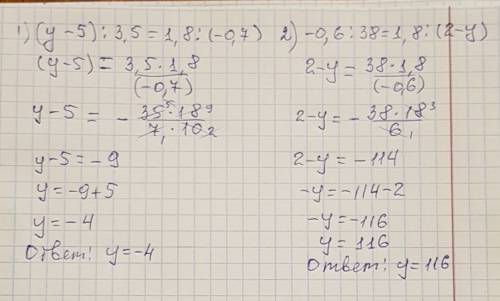 1) (y-5) : 3,5 = 1,8 : (-0,7)
(y-5) = 3,5 · 1,8 / (-0,7)
y-5 = - 35⁵ · 18⁹ / 7₁ · 10₂
y-5 = -9
y = -9+5
y = -4
Ответ: y = -4
2) -0,6 : 38 = 1,8 : (2-y)
2-y = 38 · 1,8 / (-0,6)
2-y = - 38 · 18³ / 6₁
2-y = -114
-y = -114-2
-y = -116
y = 116
Ответ: y = 116